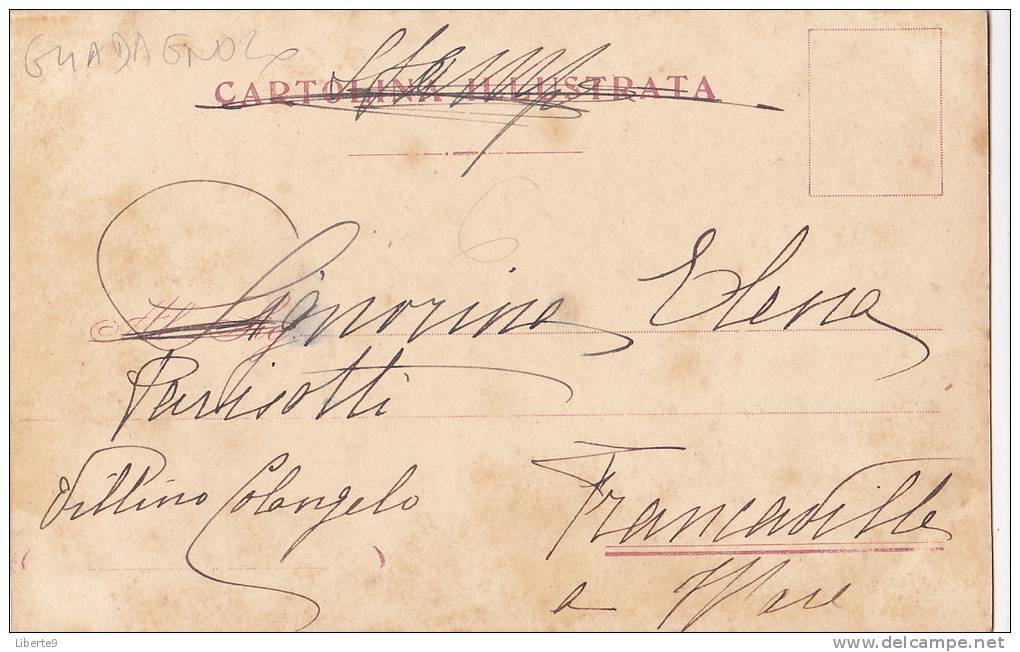 GUADAGNOLO
Stampe
CARTOLINA ILLUSTRATA
6
Signorina Elena
Parisotti
Villino Colangelo
Francavilla
a Mare
Liberte9
delcampe.net